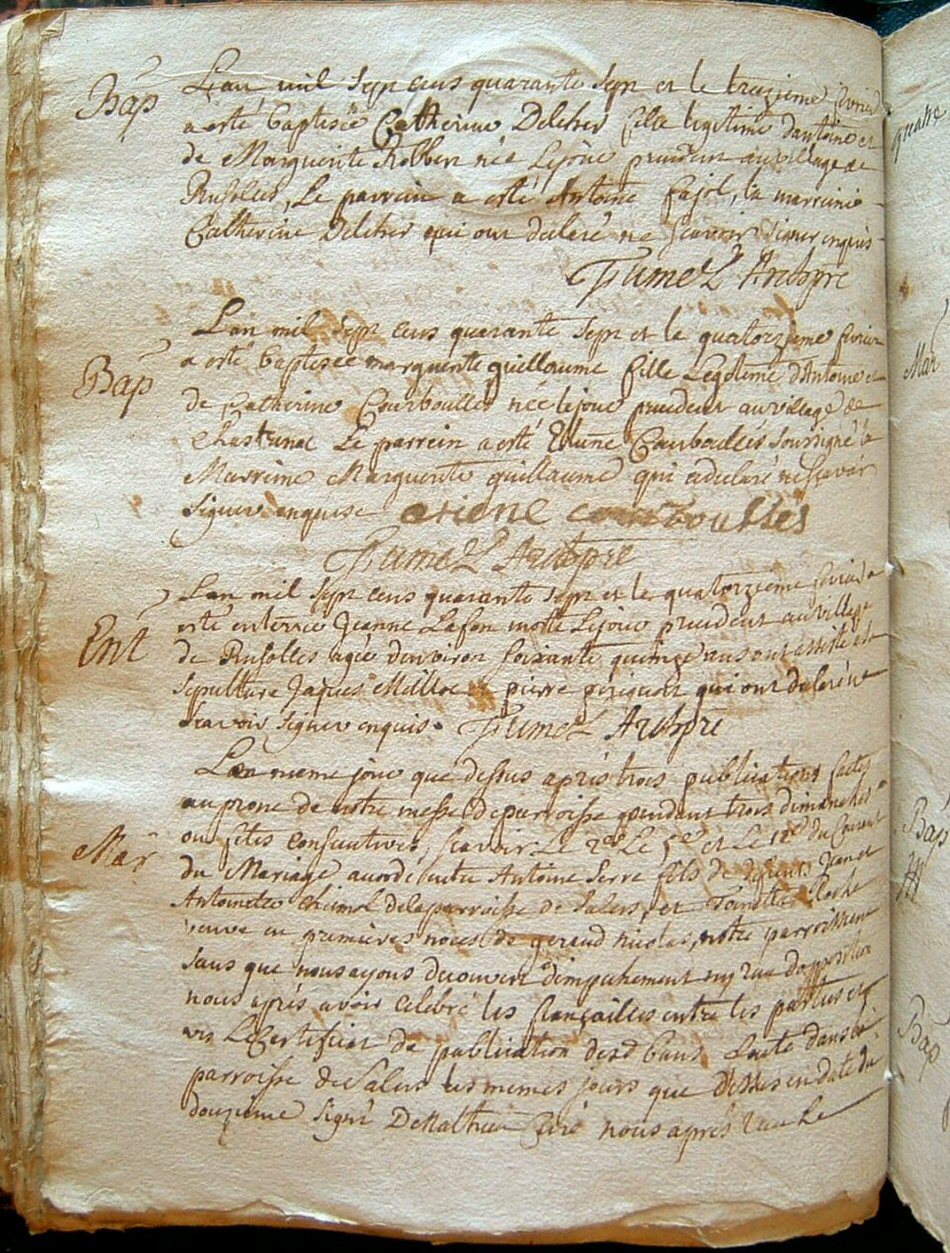 Bap
L'an mil sept cens quarante sept et le treizieme fevrier
a esté baptisée Catherine Delcher fille legitime d'antoine et
de Marguerite née le jour precedent au village de
Rusolles, Le parrein a esté Antoine fajol, la marreine
Catherine Delcher qui ont declaré ne scavoir signer enquis
Fumel
Bap
L'an mil sept cens quarante sept et le quatorzieme fevrier
a esté baptisée marguerite guillaume fille Legitime d'Antoine et
de Catherine Courboulles née le jour precedent au village de
Le parrein a esté Etiene Courboulles soussigné la
Marreine Marguerite guillaume qui a declaré ne scavoir
signer enquise etiene courboulles
Fumel
Ent
L'an mil sept cens quarante sept et le quatorzieme fevrier a
esté enterrée Jeanne Lafon morte le jour precedent au village
de Rusolles agée d'environ soixante quinze ans ont assisté a la
sepulture Jaques et pierre qui ont declaré ne
scavoir signer enquis. Fumel
Mar
L'an meme jour que dessus aprés trois publications faites
au prone de notre messe de parroisse pendant trois dimanches
ou fetes consecutives, scavoir Le 2e Le 5e et Le 12e du Courant
du Mariage accordé entre Antoine Serre fils de defunts Jean et
Antoinette de la parroisse de Salers, et Toinette
veuve en premieres noces de geraud nicolas, notre parroissienne
sans que nous ayons decouvert d'empechement ny d'opposition
nous aprés avoir celebré les fiançailles entre les parties et
vis Le Certificat de publication desd bans faite dans la
parroisse de Salers les memes jours que Dessus en date du
douzieme signé DeMathieu Curé nous apres
quatre
Mar
Bap
Bap